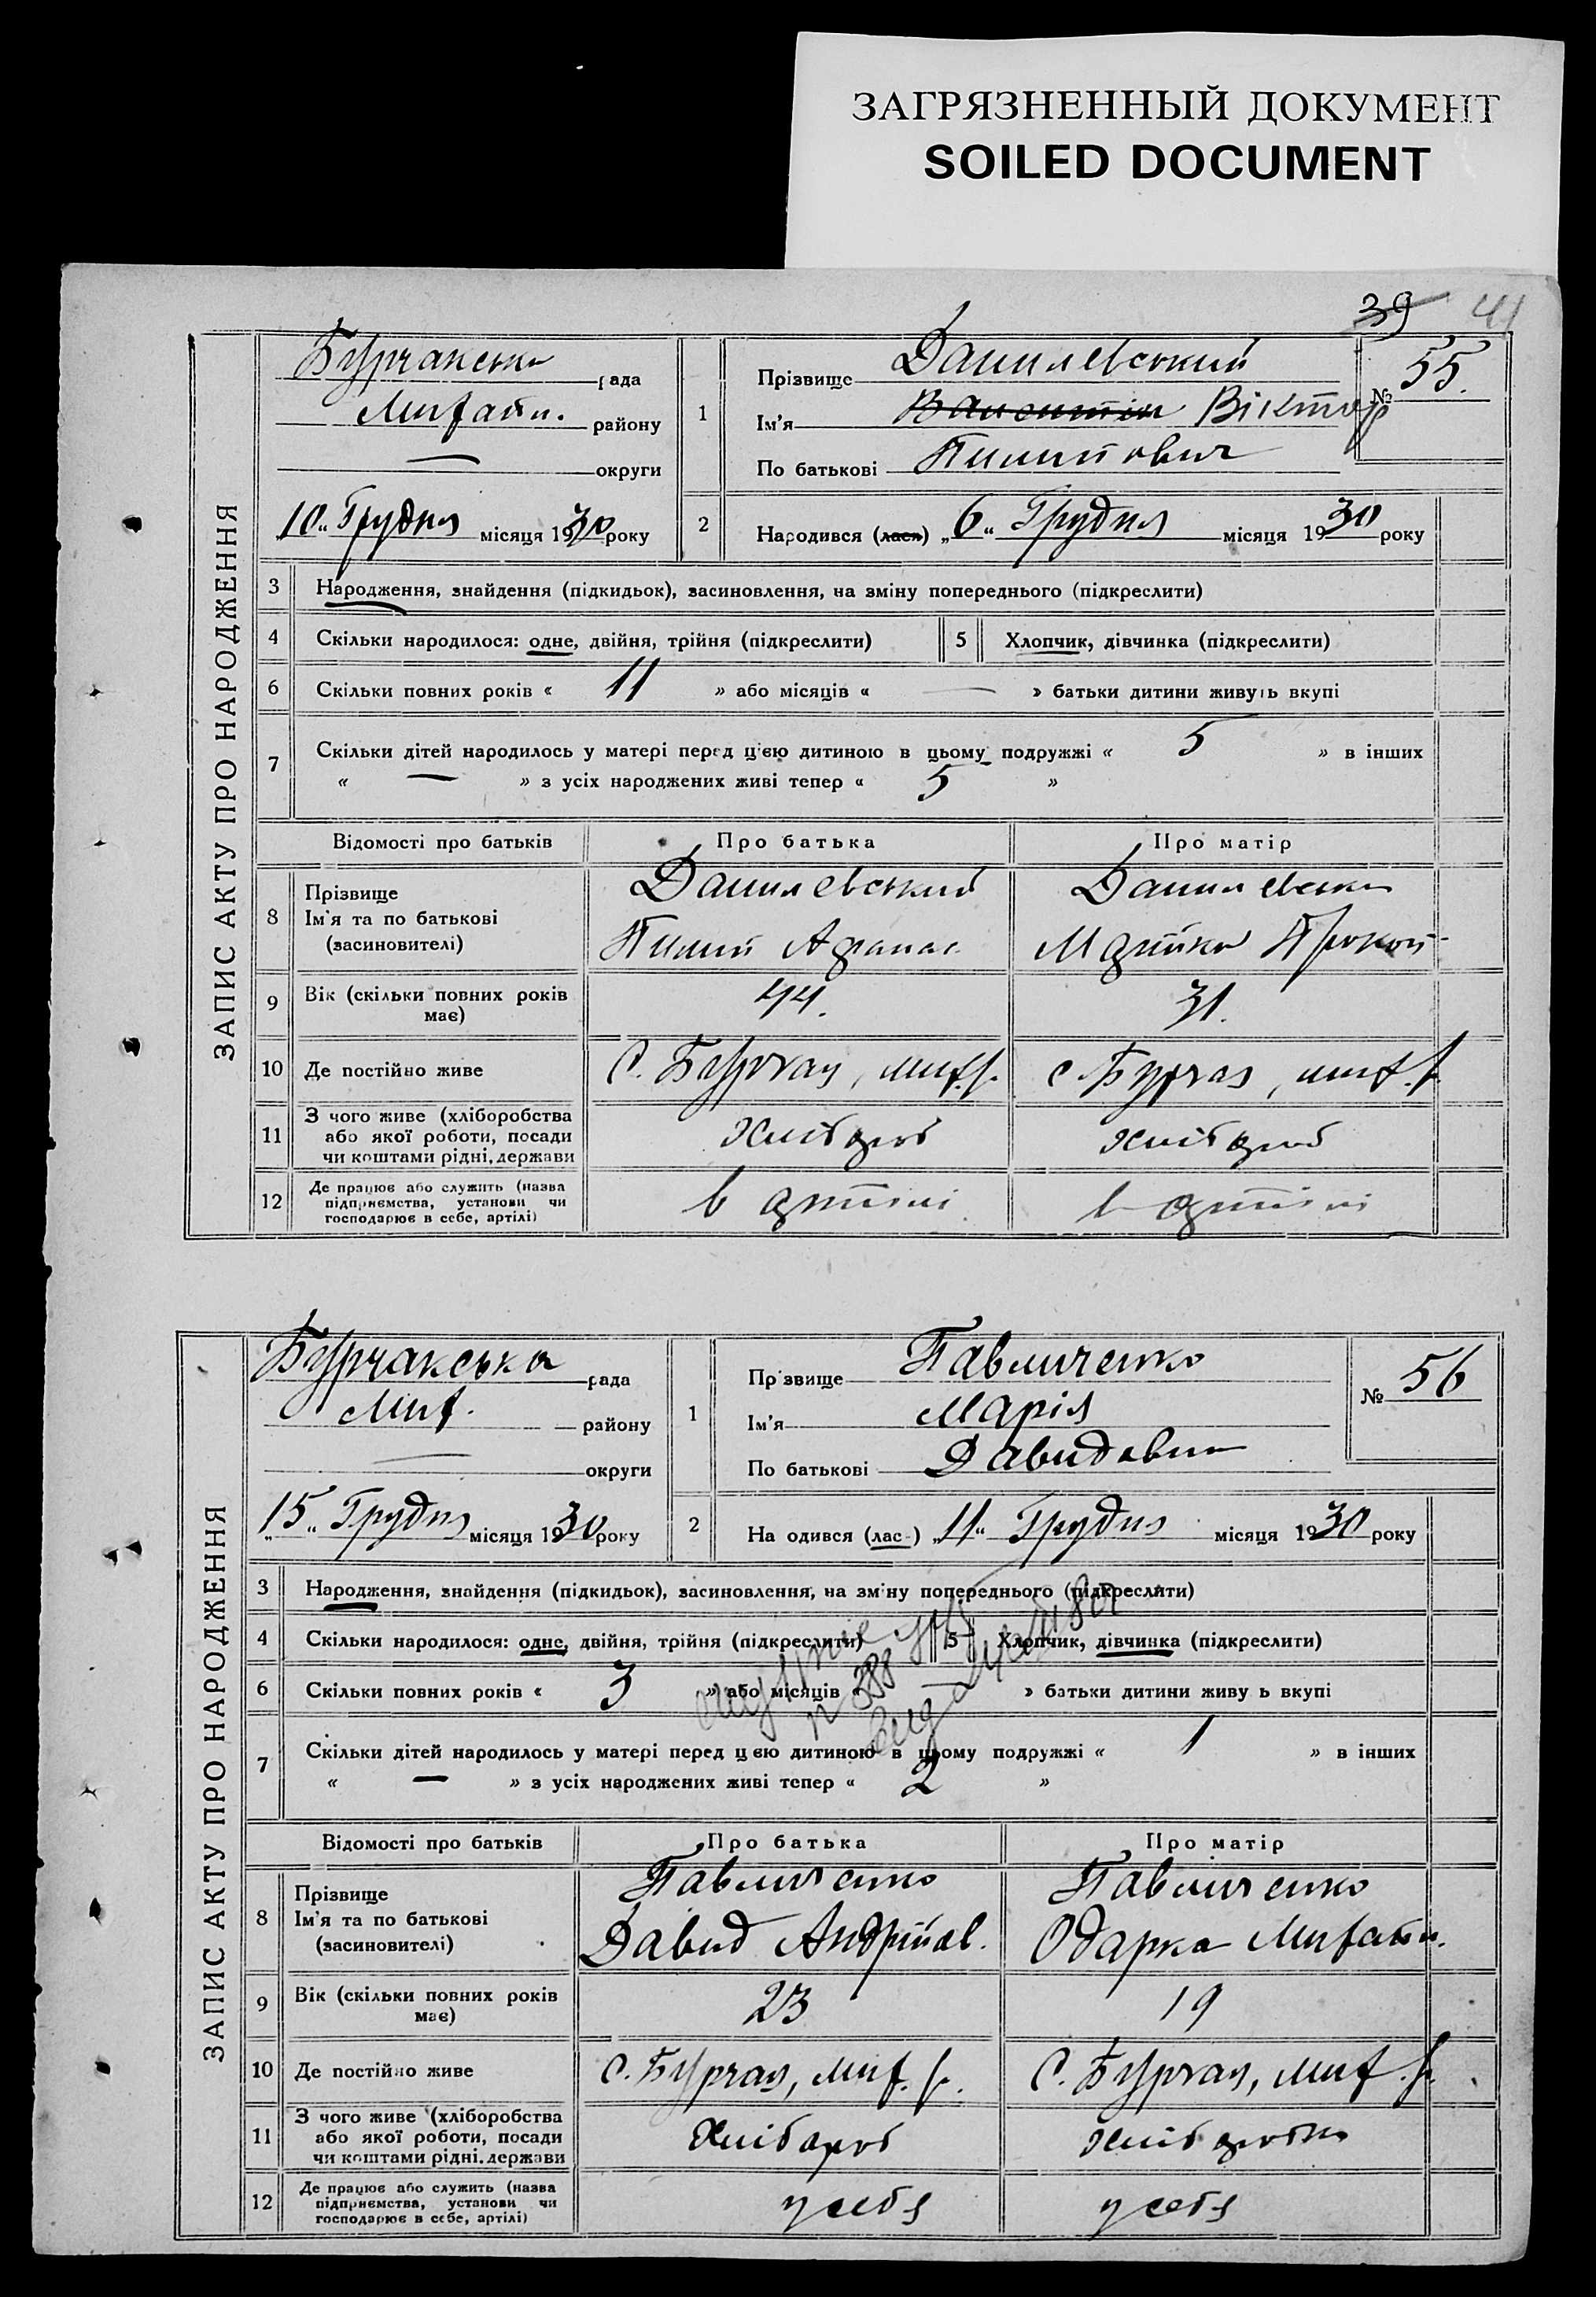 ЗАГРЯЗНЕННЫЙ ДОКУМЕНТ
SOILED DOCUMENT
39 41
ЗАПИС АКТУ ПРО НАРОДЖЕННЯ
Бурчакська рада
Михайл. району
— округи
„10“ Грудня місяця 1930 року
1 Прізвище Данилевський
Ім'я Валентин Віктор
По батькові Пилипович
№ 55.
2 Народився (лася) „6“ Грудня місяця 1930 року
3 Народження, знайдення (підкидьок), засиновлення, на зміну попереднього (підкреслити)
4 Скільки народилося: одне, двійня, трійня (підкреслити) 5 Хлопчик, дівчинка (підкреслити)
6 Скільки повних років « 11 » або місяців « — » батьки дитини живуть вкупі
7 Скільки дітей народилось у матері перед цією дитиною в цьому подружжі « 5 » в інших
« — » з усіх народжених живі тепер « 5 »
Відомості про батьків Про батька Про матір
8 Прізвище
Ім'я та по батькові
(засиновителі)
Данилевський
Пилип Афанас.
Данилевська
Прокоп-
9 Вік (скільки повних років має) 44. 31.
10 Де постійно живе С. Бурчак, мих. р. с. Бурчак, мих. р.
11 З чого живе (хліборобства
або якої роботи, посади
чи коштами рідні, держави
Хлібороб хлібороб
12 Де працює або служить (назва
підприємства, установи чи
господарює в себе, артілі)
в артілі в артілі
ЗАПИС АКТУ ПРО НАРОДЖЕННЯ
Бурчакська рада
Мих. району
— округи
„15“ Грудня місяця 1930 року
1 Прізвище Павличенко
Ім'я Марія
По батькові Давидовна
№ 56
2 На одився (лас-) „11“ Грудня місяця 1930 року
3 Народження, знайдення (підкидьок), засиновлення, на зміну попереднього (підкреслити)
4 Скільки народилося: одне, двійня, трійня (підкреслити) 5 Хлопчик, дівчинка (підкреслити)
6 Скільки повних років « 3 » або місяців « — » батьки дитини живу ь вкупі
№ 388
7 Скільки дітей народилось у матері перед цією дитиною в цьому подружжі « 1 » в інших
« — » з усіх народжених живі тепер « 2 »
Відомості про батьків Про батька Про матір
8 Прізвище
Ім'я та по батькові
(засиновителі)
Павличенко
Давид Андрійов.
Павличенко
Одарка Михайл.
9 Вік (скільки повних років має) 23 19
10 Де постійно живе С. Бурчак, мих. р. С. Бурчак, мих. р.
11 З чого живе (хліборобства
або якої роботи, посади
чи коштами рідні, держави
Хлібороб хліборобка
12 Де працює або служить (назва
підприємства, установи чи
господарює в себе, артілі)
у себя у себя